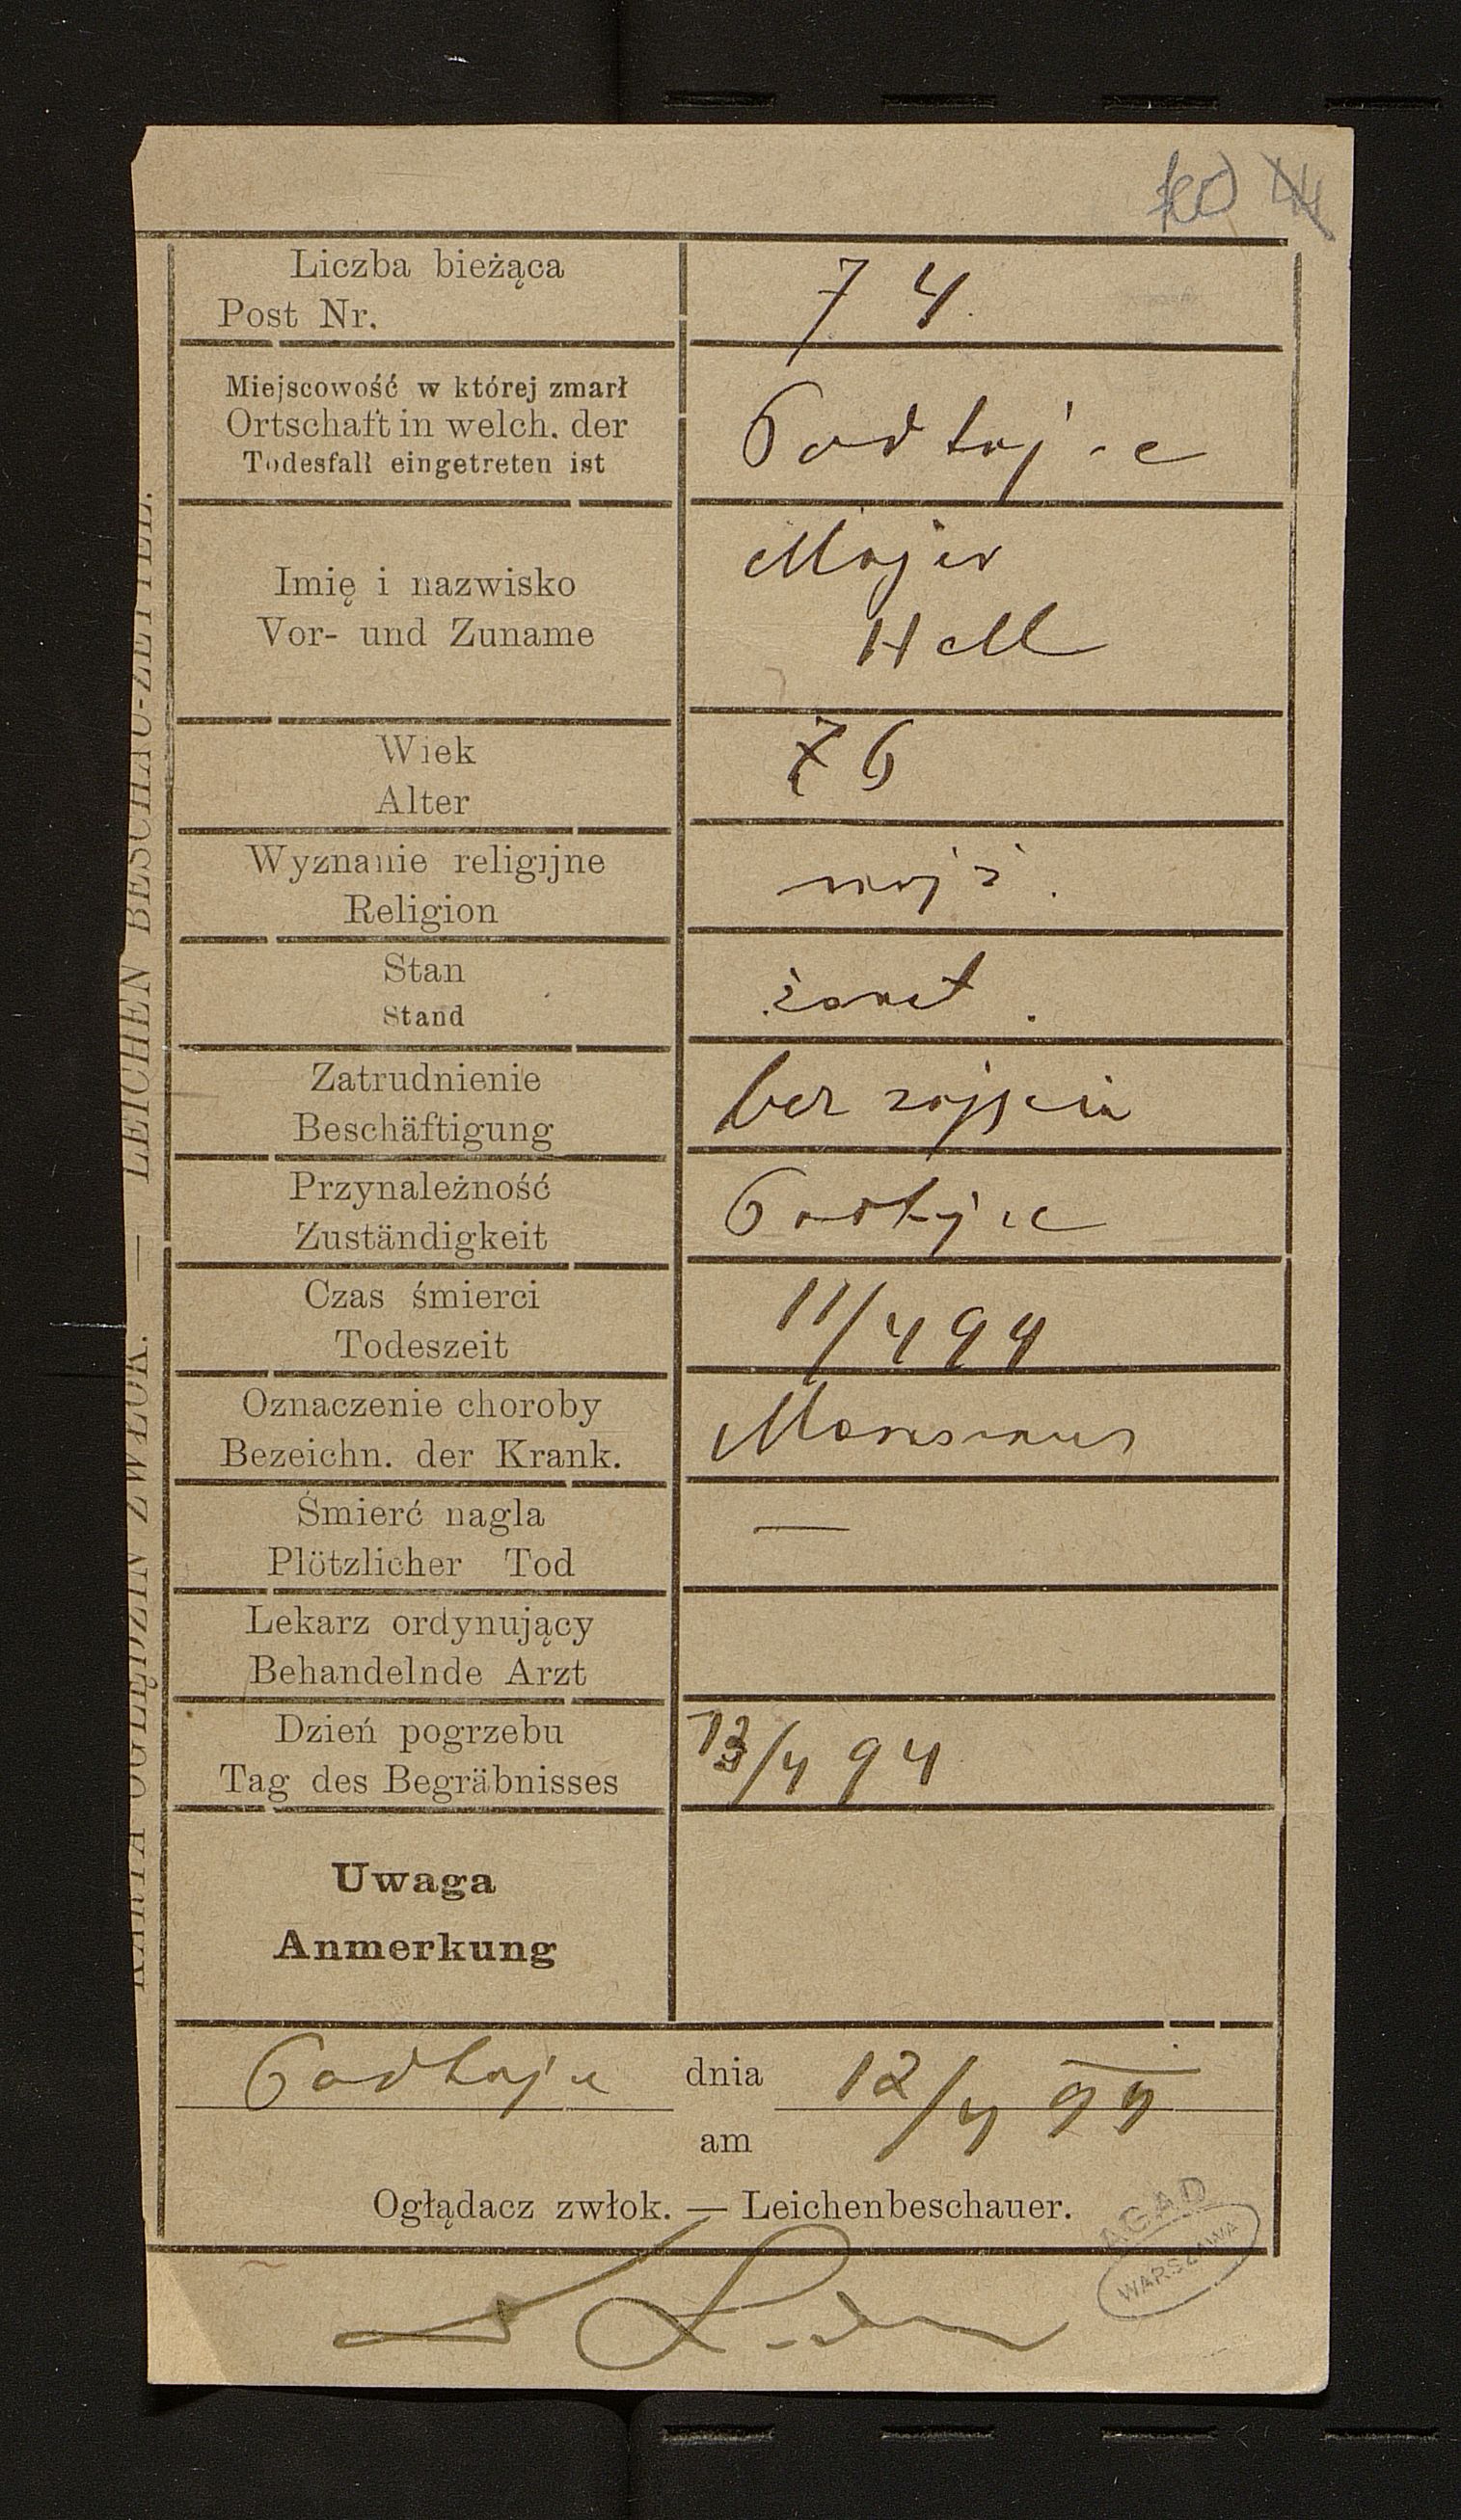 Liczba bieżąca
Post Nr.
74
Miejscowość w której zmarł
Ortschaft in welch. der
Todesfall eingetreten ist
Podhajce
Imię i nazwisko
Vor- und Zuname
Majer
Hell
Wiek
Alter
76
Wyznanie religijne
Religion
mojż.
Stan
Stand
żonat.
Zatrudnienie
Beschäftigung
bez zajęcia
Przynależność
Zuständigkeit
Podhajce
Czas śmierci
Todeszeit
11/4 94
Oznaczenie choroby
Bezeichn. der Krank.
Marasmus
Śmierć nagla
Plötzlicher Tod
—
Lekarz ordynujący
Behandelnde Arzt
Dzień pogrzebu
Tag des Begräbnisses
13/4 94
Uwaga
Anmerkung
Podhajce dnia 12/4 94
am
Oglądacz zwłok. — Leichenbeschauer.
AGAD
WARSZAWA
KARTA OGLĘDZIN ZWŁOK. — LEICHEN BESCHAU-ZETTEL.